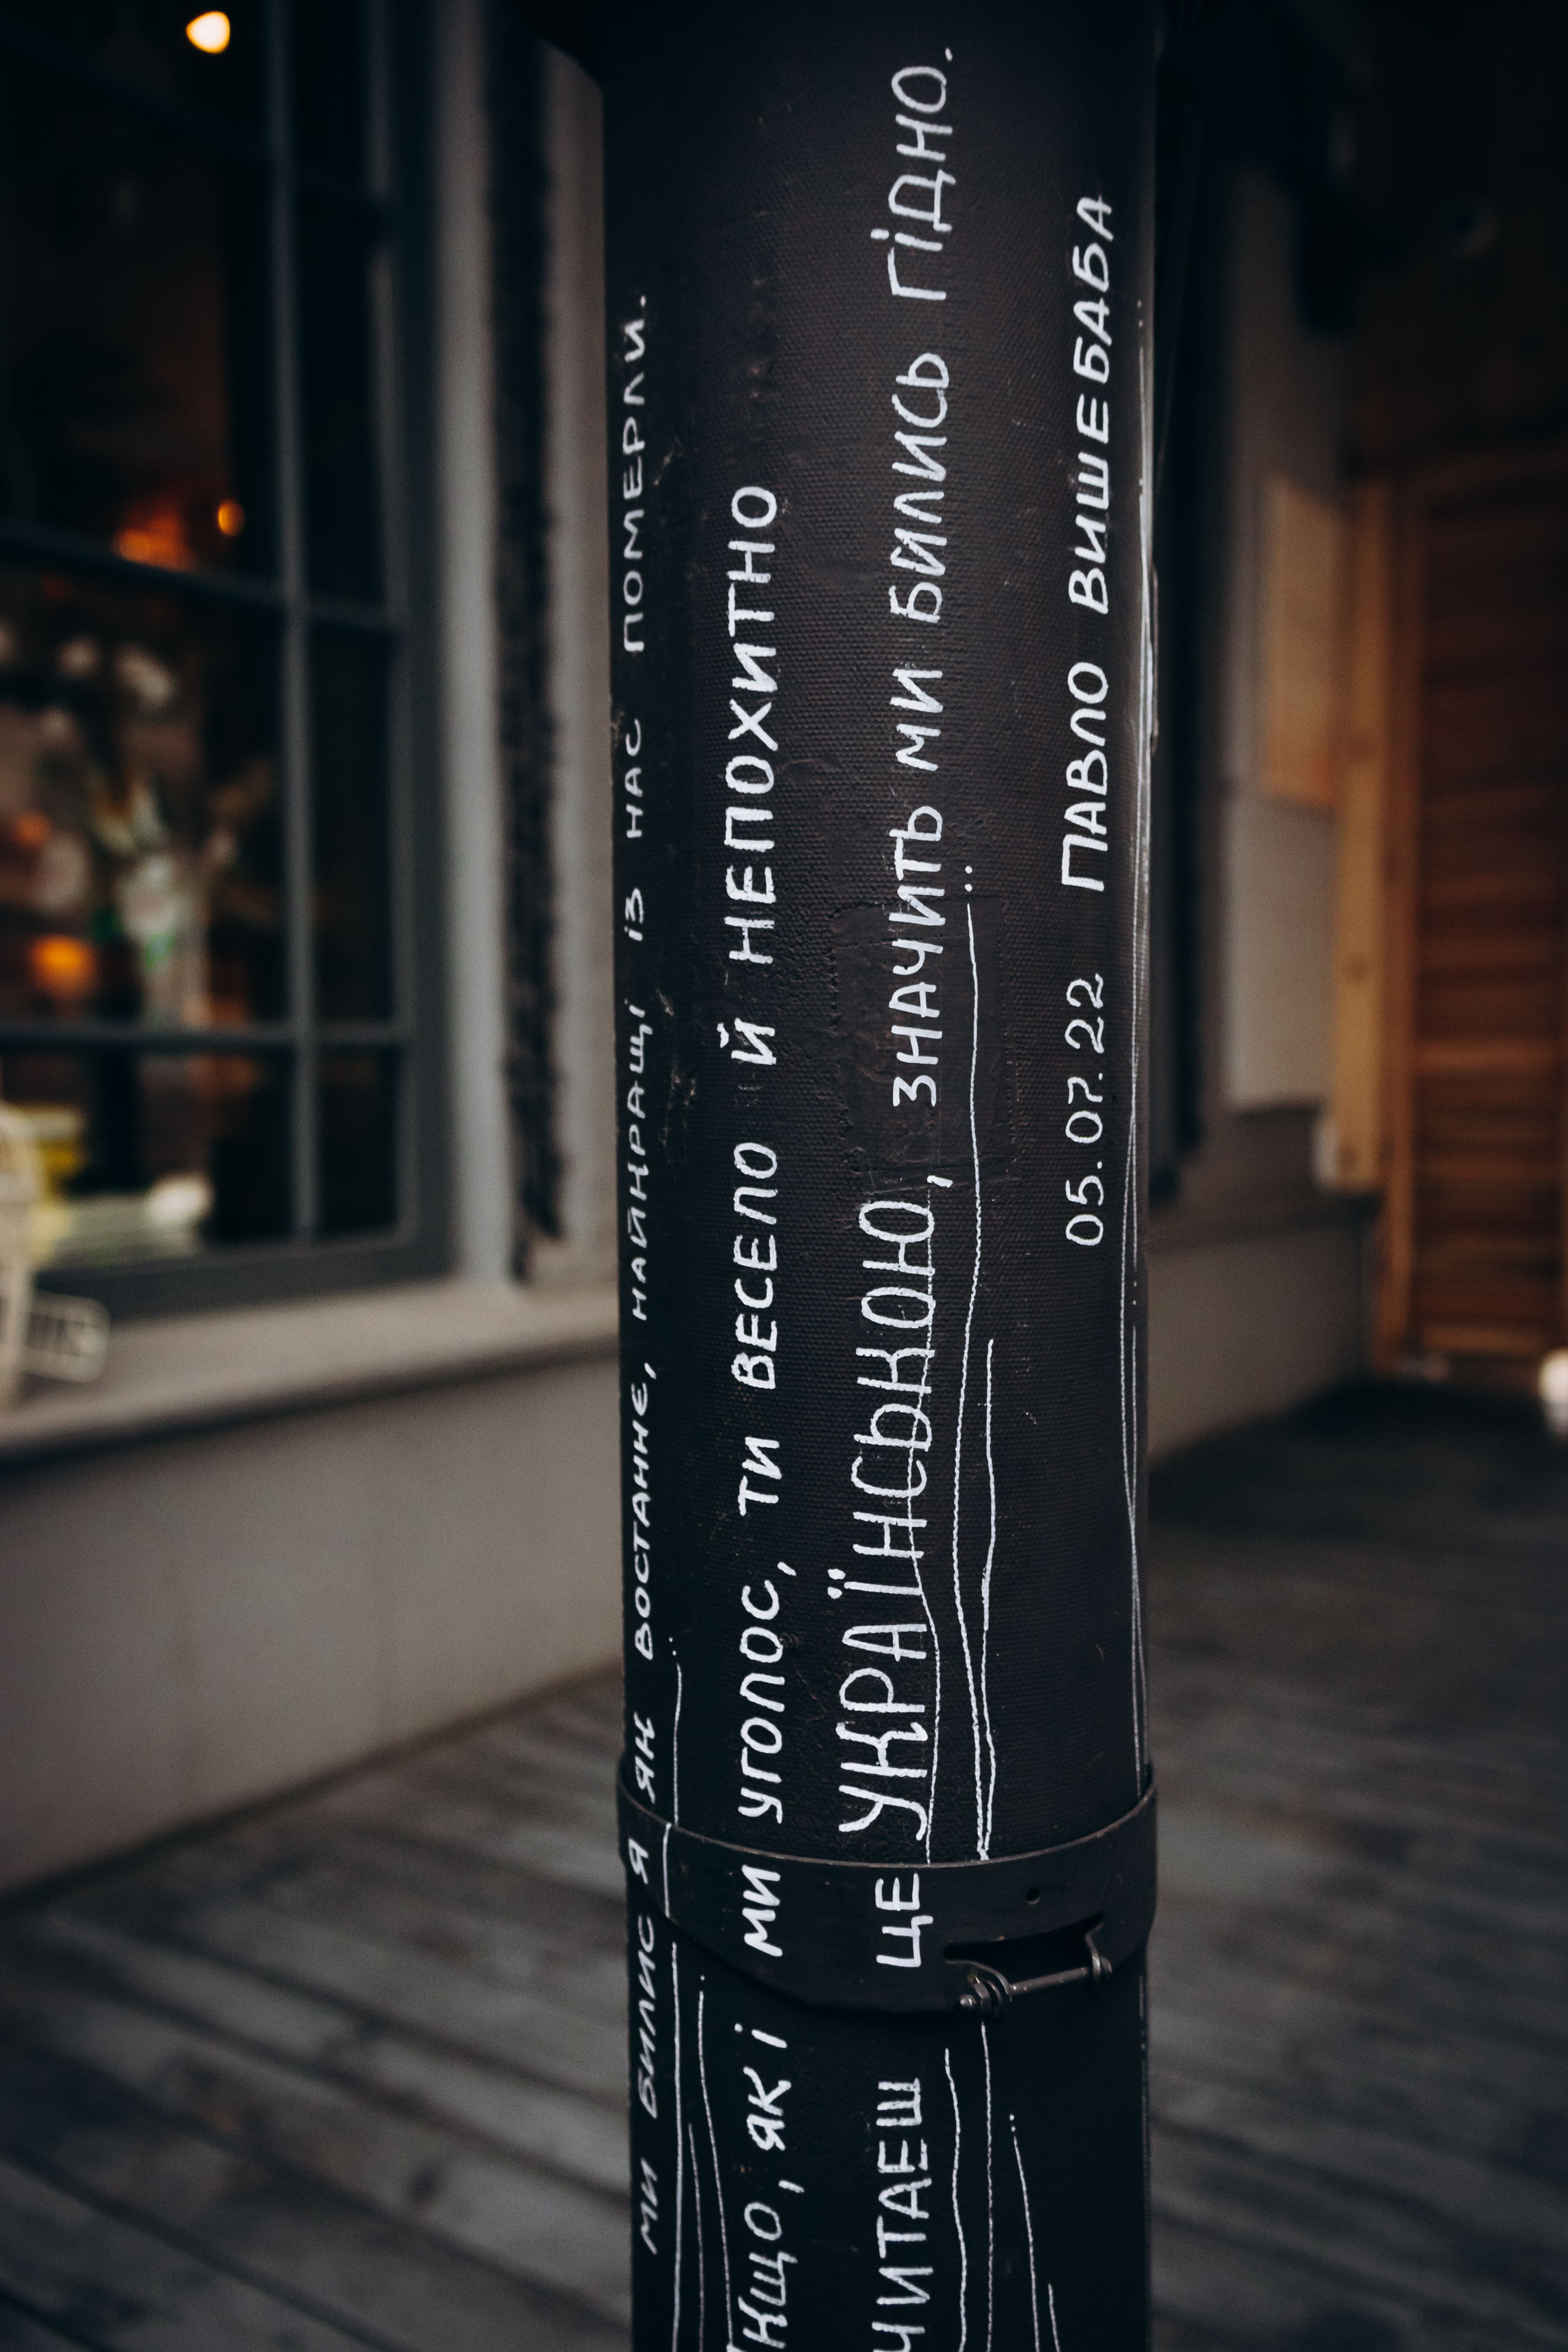 МИ БИЛИСЯ ЯК ВОСТАННЄ, НАЙКРАЩІ ІЗ НАС ПОМЕРЛИ.
ЯКЩО, ЯК І МИ УГОЛОС, ТИ ВЕСЕЛО Й НЕПОХИТНО
ЧИТАЕШ ЦЕ УКРАЇНСЬКОЮ, ЗНАЧИТЬ МИ БИЛИСЬ ГІДНО.
05.07.22 ПАВЛО ВИШЕБАБА